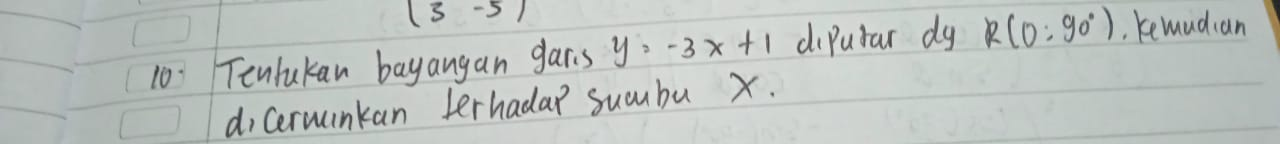 (3 -5)
10. Tentukan bayangan garis y = -3x + 1 diputar dg R(0:90°). Kemudian
dicerminkan terhadap sumbu X.